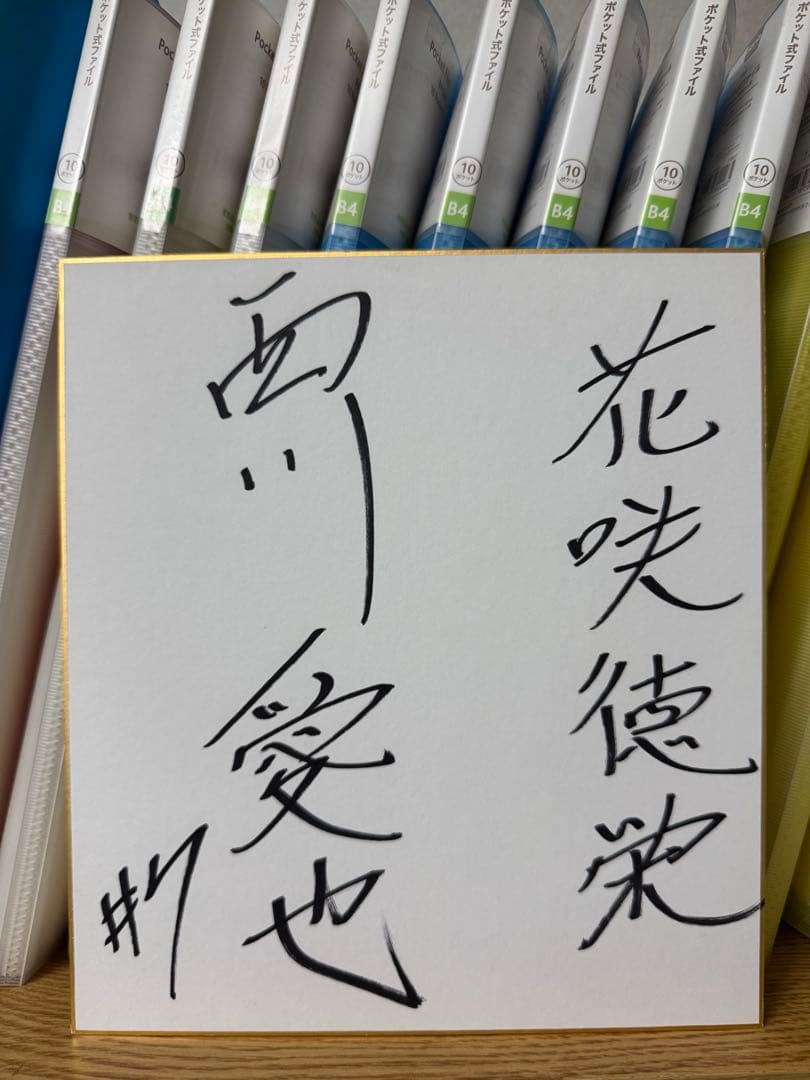 ポケット式ファイル
ポケット式ファイル
ポケット式ファイル
ポケット式ファイル
ポケット式ファイル
ポケット式ファイル
ポケット式ファイル
ポケット式ファイル
Pocke
Pocke
Pocke
Pocke
10
ポケット
10
ポケット
10
ポケット
10
ポケット
10
ポケット
10
ポケット
10
ポケット
10
ポケット
B4
B4
B4
B4
B4
B4
B4
B4
花咲徳栄
西川愛也
#7